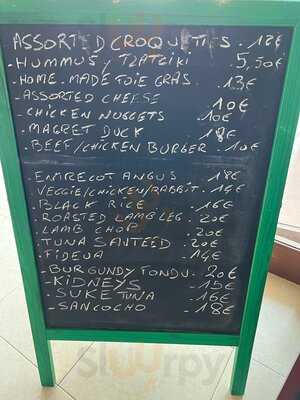 ASSORTED CROQUETTES . 12€
-HUMMUS, TZATZIKI . 5,50€
-HOME.MADE FOIE GRAS. . 13€
-ASSORTED CHEESE . 10€
-CHICKEN NUGGETS . 10€
-MAGRET DUCK . 18€
-BEEF/CHICKEN BURGER . 10€
-ENTRECOT ANGUS . 18€
-VEGGIE/CHICKEN/RABBIT . 14€
-BLACK RICE . 16€
-ROASTED LAMB LEG . 20€
LAMB CHOP . 20€
-TUNA SAUTEED . 20€
-FIDEUA . 14€
-BURGUNDY FONDU . 20€
-KIDNEYS -15€
-SUKE TUNA -16€
-SANCOCHO -18€
Sluurpy